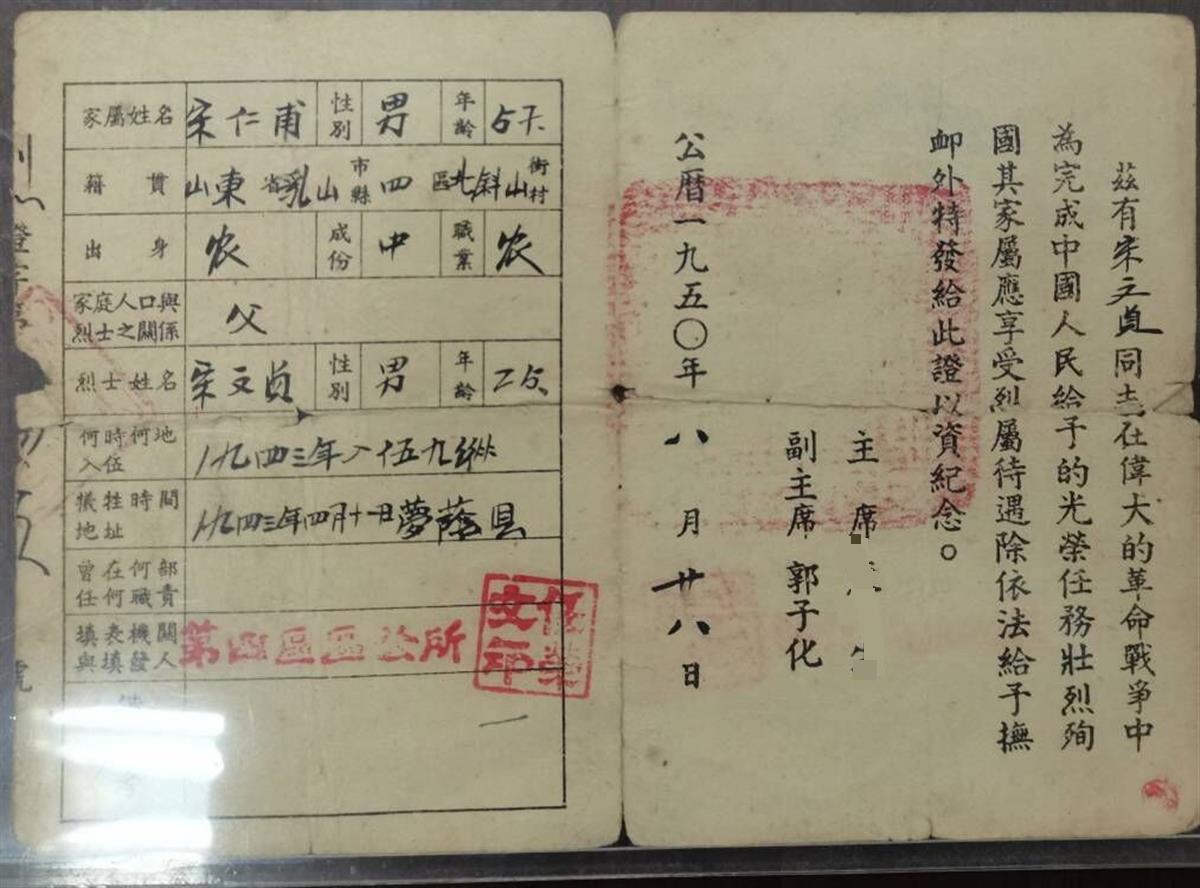 茲有宋文貞同志在偉大的革命戰爭中
為完成中國人民給予的光榮任務壯烈殉
國其家屬應享受烈屬待遇除依法給予撫
卹外特發給此證以資紀念。
主席
副主席 郭子化
公曆一九五〇年八月廿八日
家屬姓名 宋仁甫 性別 男 年齡 57.
籍貫 山東省乳山市縣四區北斜山街村
出身 农 成份 中 職業 农
家庭人口與烈士之關係 父
烈士姓名 宋文貞 性別 男 年齡 25.
何時何地入伍 一九四三年入伍九纵
犠牲時間地址 一九四三年四月十一日夢蔭县
曾在何部任何職責
填表機關與填發人 第四區區公所
任榮文印
備
考
證字第
號